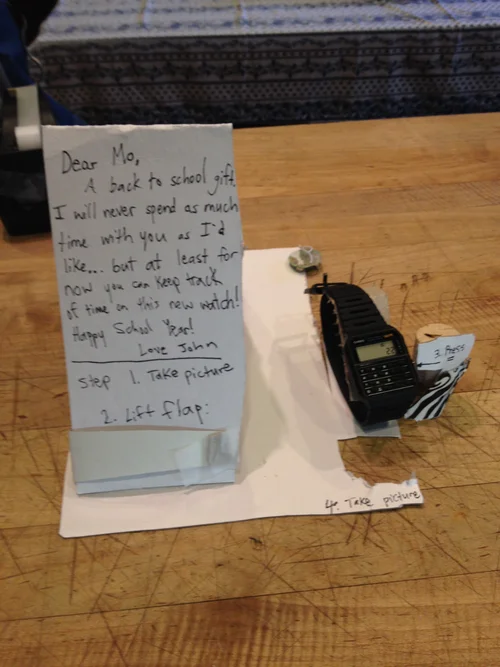 Dear Mo,
A back to school gift.
I will never spend as much
time with you as I'd
like... but at least for
now you can keep track
of time on this new watch!
Happy School Year!
Love John
Step 1. Take picture
2. Lift flap:
3. Press
=
4. Take picture